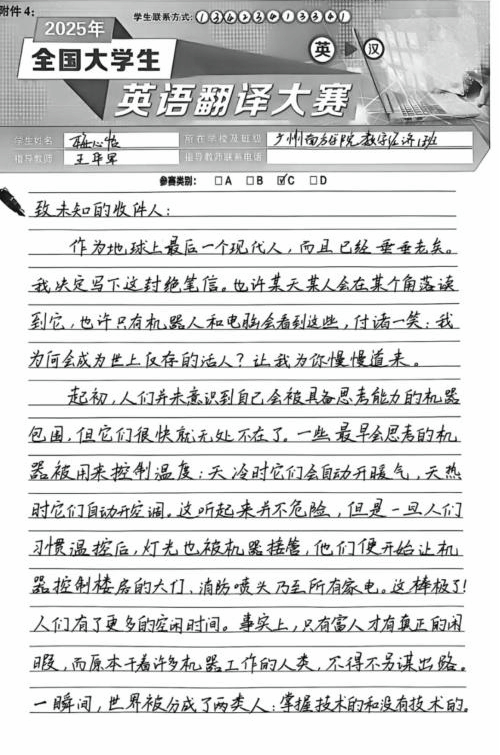 附件4:
学生联系方式:①③⑥②③⓪①③③⓪①
2025年
全国大学生
英 汉
英语翻译大赛
学生姓名 所在学校及班级 广州南方学院数字经济1班
指导教师 指导教师联系电话
参赛类别: □A □B ☑C □D
致未知的收件人:
作为地球上最后一个现代人,而且已经垂垂老矣。
我决定写下这封绝笔信。也许某天某人会在某个角落读
到它,也许只有机器人和电脑会看到这些,付诸一笑:我
为何会成为世上仅存的活人?让我为你慢慢道来。
起初,人们并未意识到自己会被具备思考能力的机器
包围,但它们很快就无处不在了。一些最早会思考的机
器被用来控制温度:天冷时它们会自动开暖气,天热
时它们自动开空调。这听起来并不危险,但是一旦人们
习惯温控后,灯光也被机器接管,他们便开始让机
器控制楼房的大门、消防喷头乃至所有家电。这棒极了!
人们有了更多的空闲时间。事实上,只有富人才有真正的闲
暇,而原本干着许多机器工作的人类,不得不另谋出路。
一瞬间,世界被分成了两类人:掌握技术的和没有技术的。